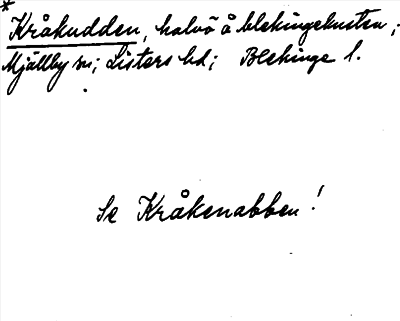 * Kråkudden, halvö å blekingekusten;
Mjällby sn; Listers hd; Blekinge l.
Se Kråkenabben!